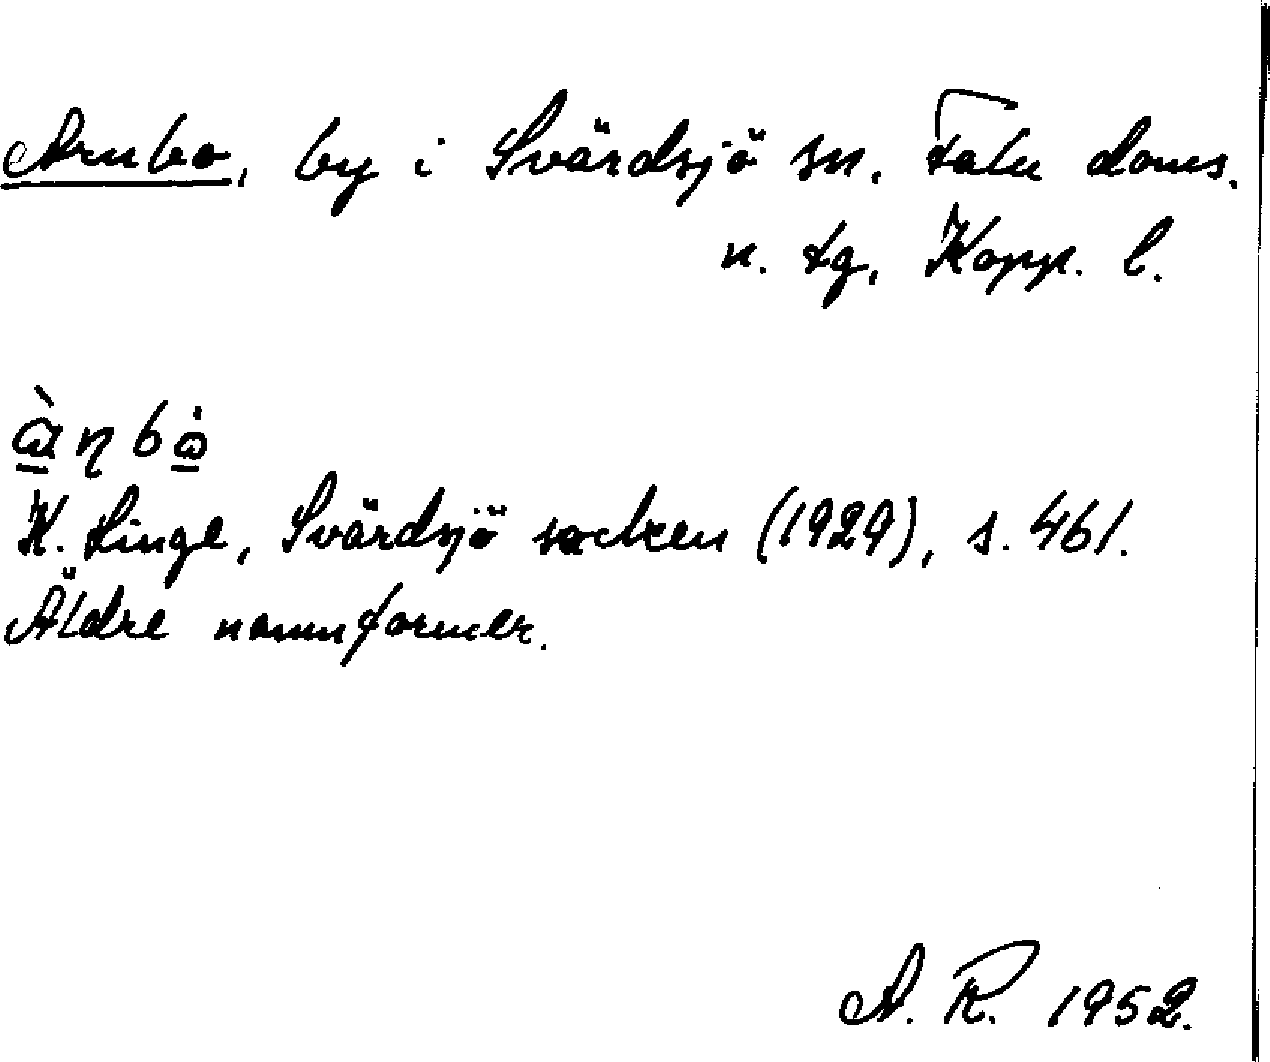 Arnbo, by i Svärdsjö sn. Falu doms.
n. tg, Kopp. l.
K. Linge, Svärdsjö socken (1929), s. 461.
Äldre namnformer.
A. R. 1952.